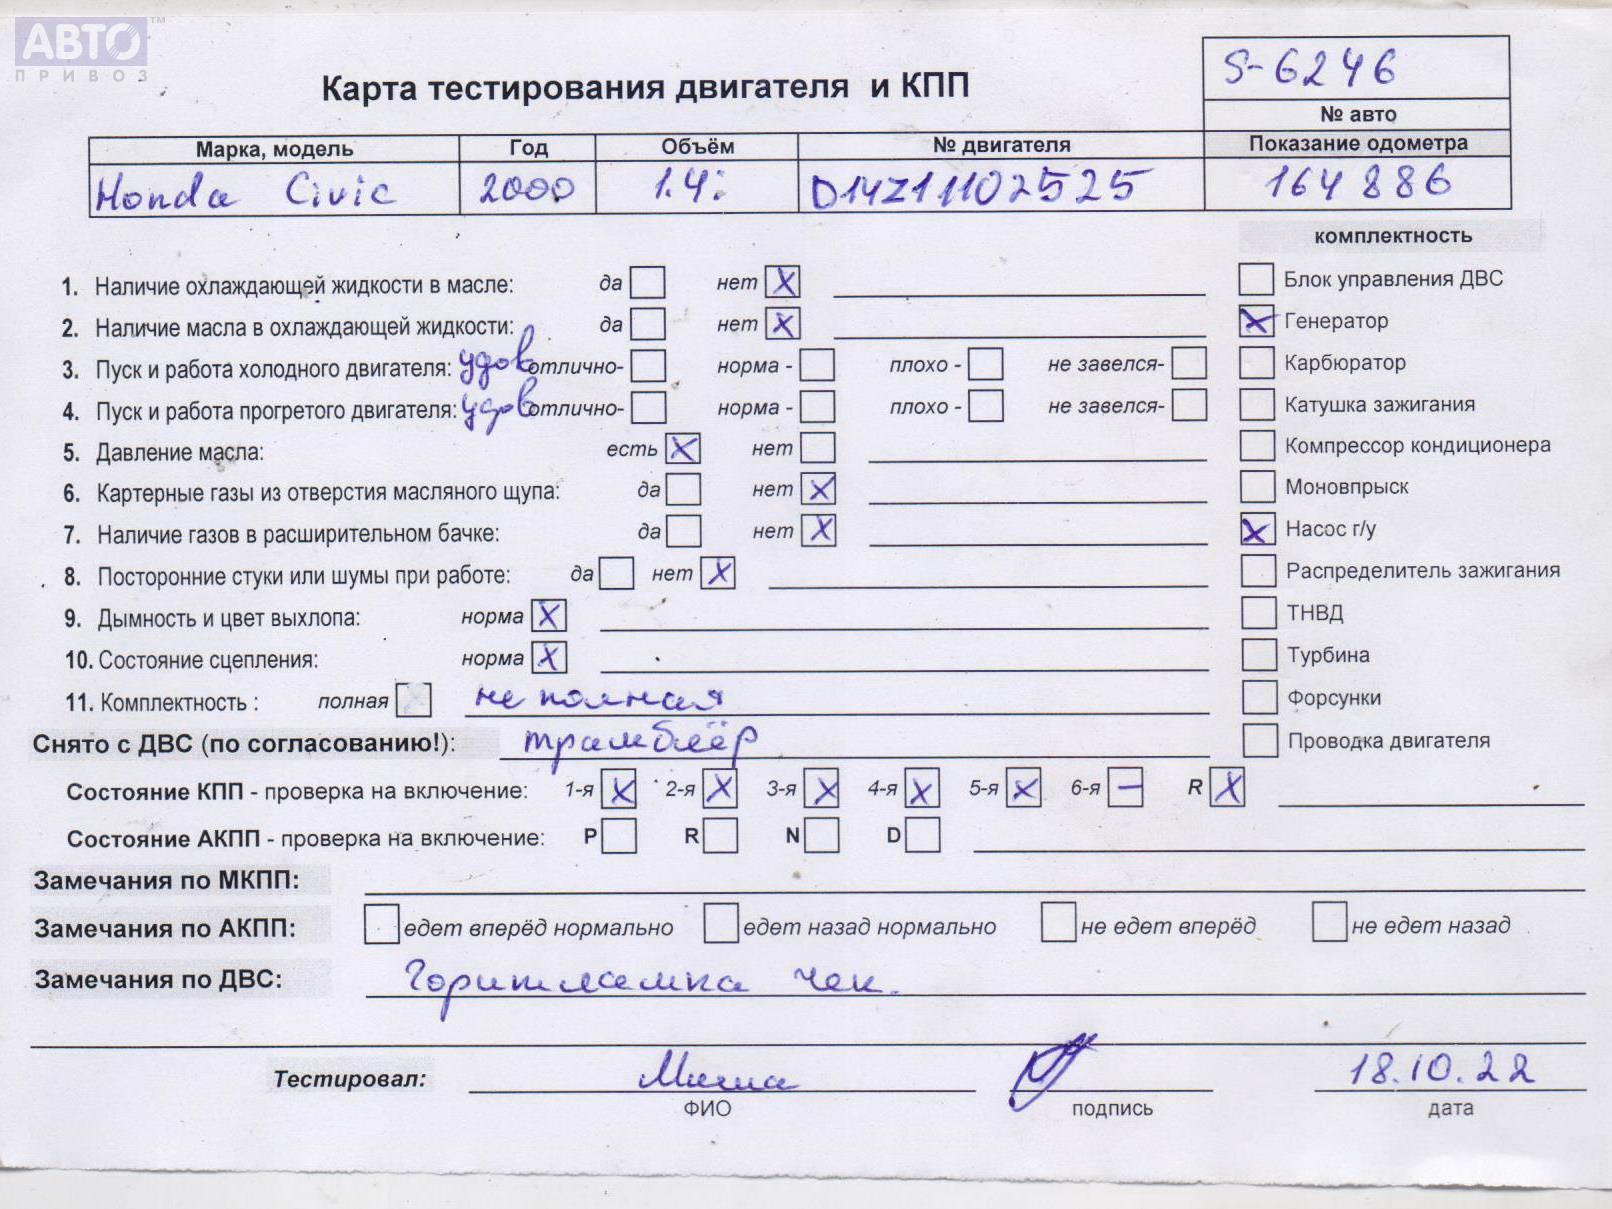 АВТО™
ПРИВОЗ
S-6246
Карта тестирования двигателя и КПП
№ авто
Марка, модель Год Объём № двигателя Показание одометра
Honda Civic 2000 1.4i D14Z11102525 164886
комплектность
1. Наличие охлаждающей жидкости в масле: да нет X Блок управления ДВС
2. Наличие масла в охлаждающей жидкости: да нет X X Генератор
3. Пуск и работа холодного двигателя: удов отлично- норма - плохо - не завелся- Карбюратор
4. Пуск и работа прогретого двигателя: удов отлично- норма - плохо - не завелся- Катушка зажигания
5. Давление масла: есть X нет Компрессор кондиционера
6. Картерные газы из отверстия масляного щупа: да нет X Моновпрыск
7. Наличие газов в расширительном бачке: да нет X X Насос г/у
8. Посторонние стуки или шумы при работе: да нет X Распределитель зажигания
9. Дымность и цвет выхлопа: норма X ТНВД
10. Состояние сцепления: норма X Турбина
11. Комплектность : полная не полная Форсунки
Снято с ДВС (по согласованию!): трамблёр Проводка двигателя
Состояние КПП - проверка на включение: 1-я X 2-я X 3-я X 4-я X 5-я X 6-я – R X
Состояние АКПП - проверка на включение: P R N D
Замечания по МКПП:
Замечания по АКПП: едет вперёд нормально едет назад нормально не едет вперёд не едет назад
Замечания по ДВС: Горит лампа чек.
Тестировал: Миша 18.10.22
ФИО подпись дата